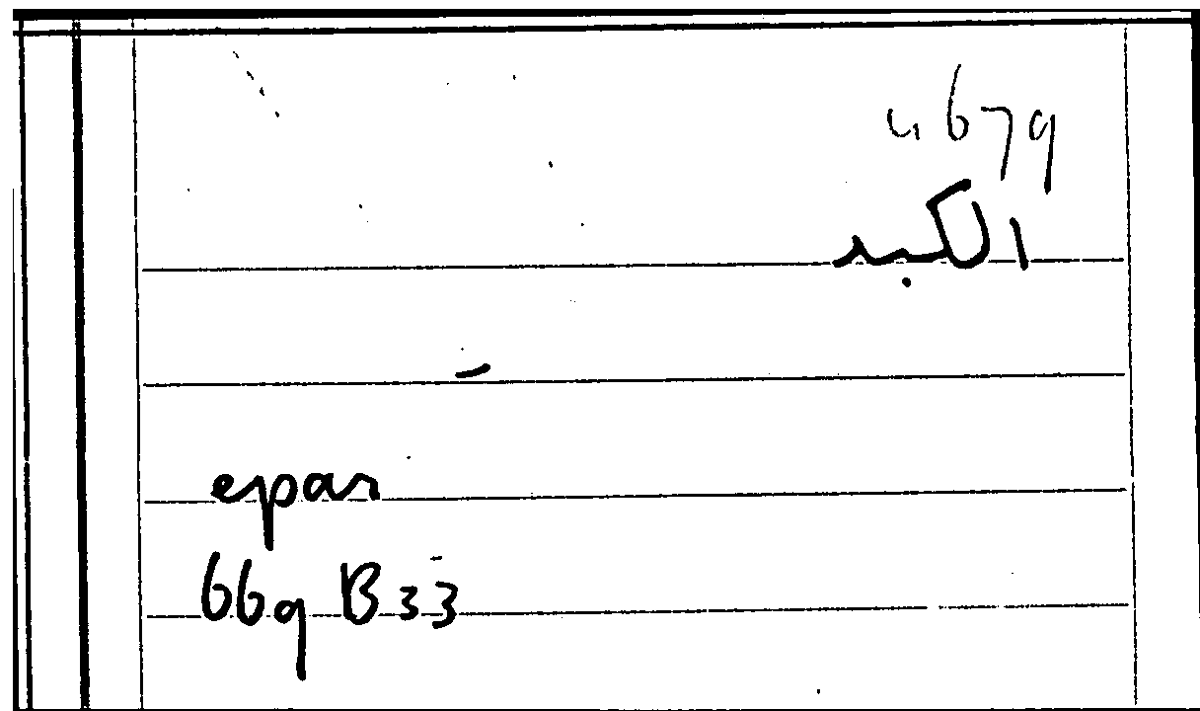 الكبد
epar
669 B33